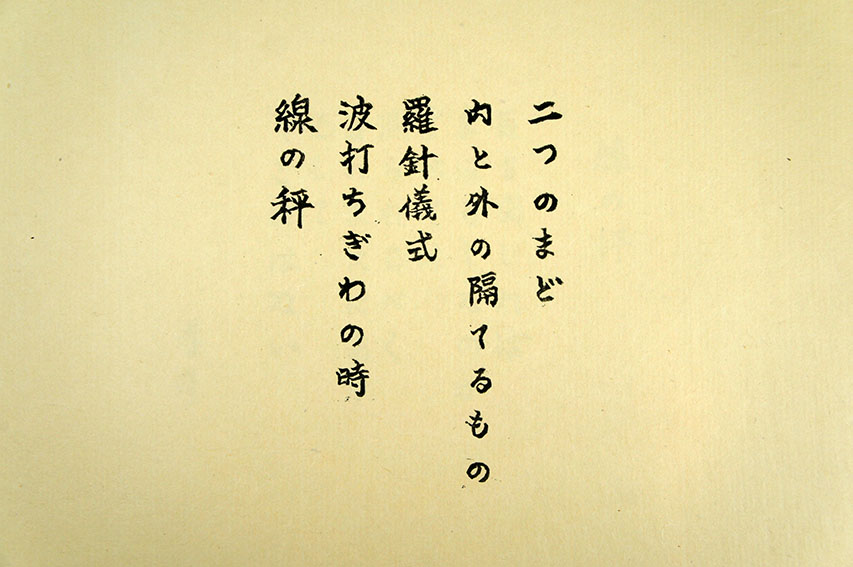 二つのまど
内と外の隔てるもの
羅針儀式
波打ちぎわの時
線の秤